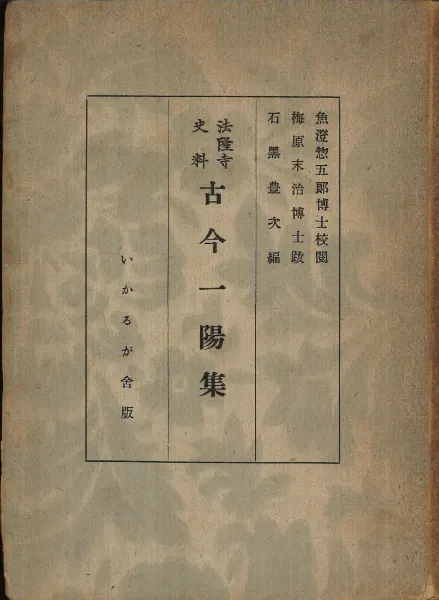 魚澄惣五郎博士校閲
梅原末治博士跋
石黒豊次編
法隆寺
史料
古今一陽集
いかるが舎版